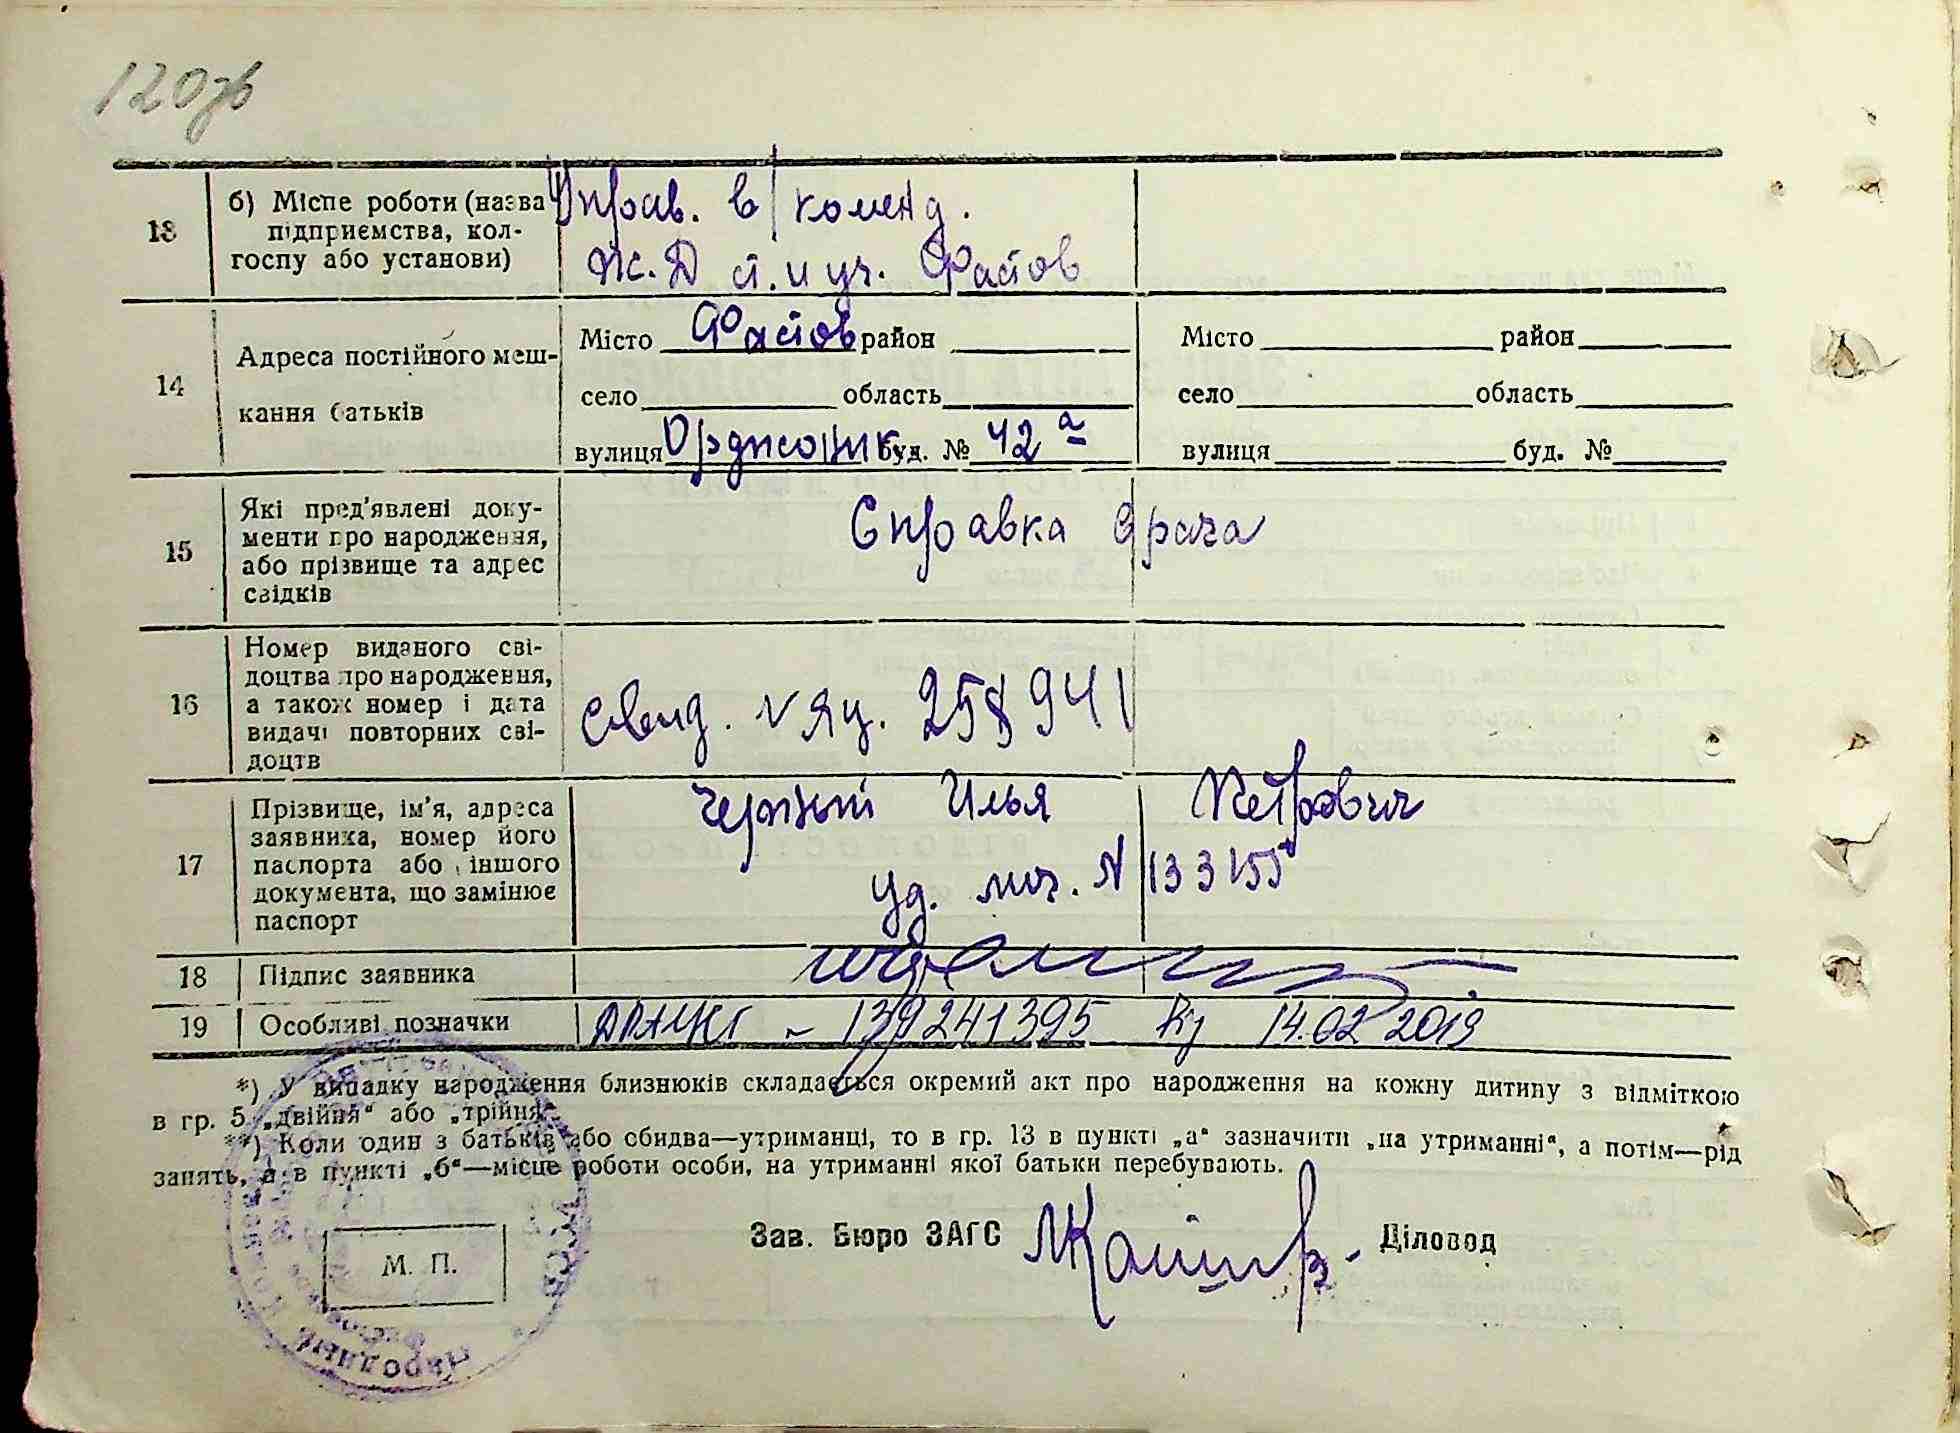 120зв
13
б) Місце роботи (назва
підприємства, кол-
госпу або установи)
Управ. в коменд.
Ж.Д ст. и уч. Фастов
14
Адреса постійного меш-
кання батьків
Місто Фастов район
село область
вулиця Орджоник буд. № 42 а
Місто район
село область
вулиця буд. №
15
Які пред'явлені доку-
менти про народження,
або прізвище та адрес
свідків
Справка врача
16
Номер виданого сві-
доцтва про народження,
а також номер і дата
видачі повторних сві-
доцтв
Свид. V ЯЦ. 258941
17
Прізвище, ім'я, адреса
заявника, номер його
паспорта або іншого
документа, що замінює
паспорт
Черный Илья Петрович
уд. лич. N 133155
18
Підпис заявника
19
Особливі позначки
ДРАЦСГ - 139241395 14.02.2019
*) У випадку народження близнюків складається окремий акт про народження на кожну дитину з відміткою
в гр. 5 „двійня“ або „трійня“.
**) Коли один з батьків або обидва—утриманці, то в гр. 13 в пункті „а“ зазначити „на утриманні“, а потім—рід
занять, а в пункті „б“—місце роботи особи, на утриманні якої батьки перебувають.
М. П.
Зав. Бюро ЗАГС
Діловод